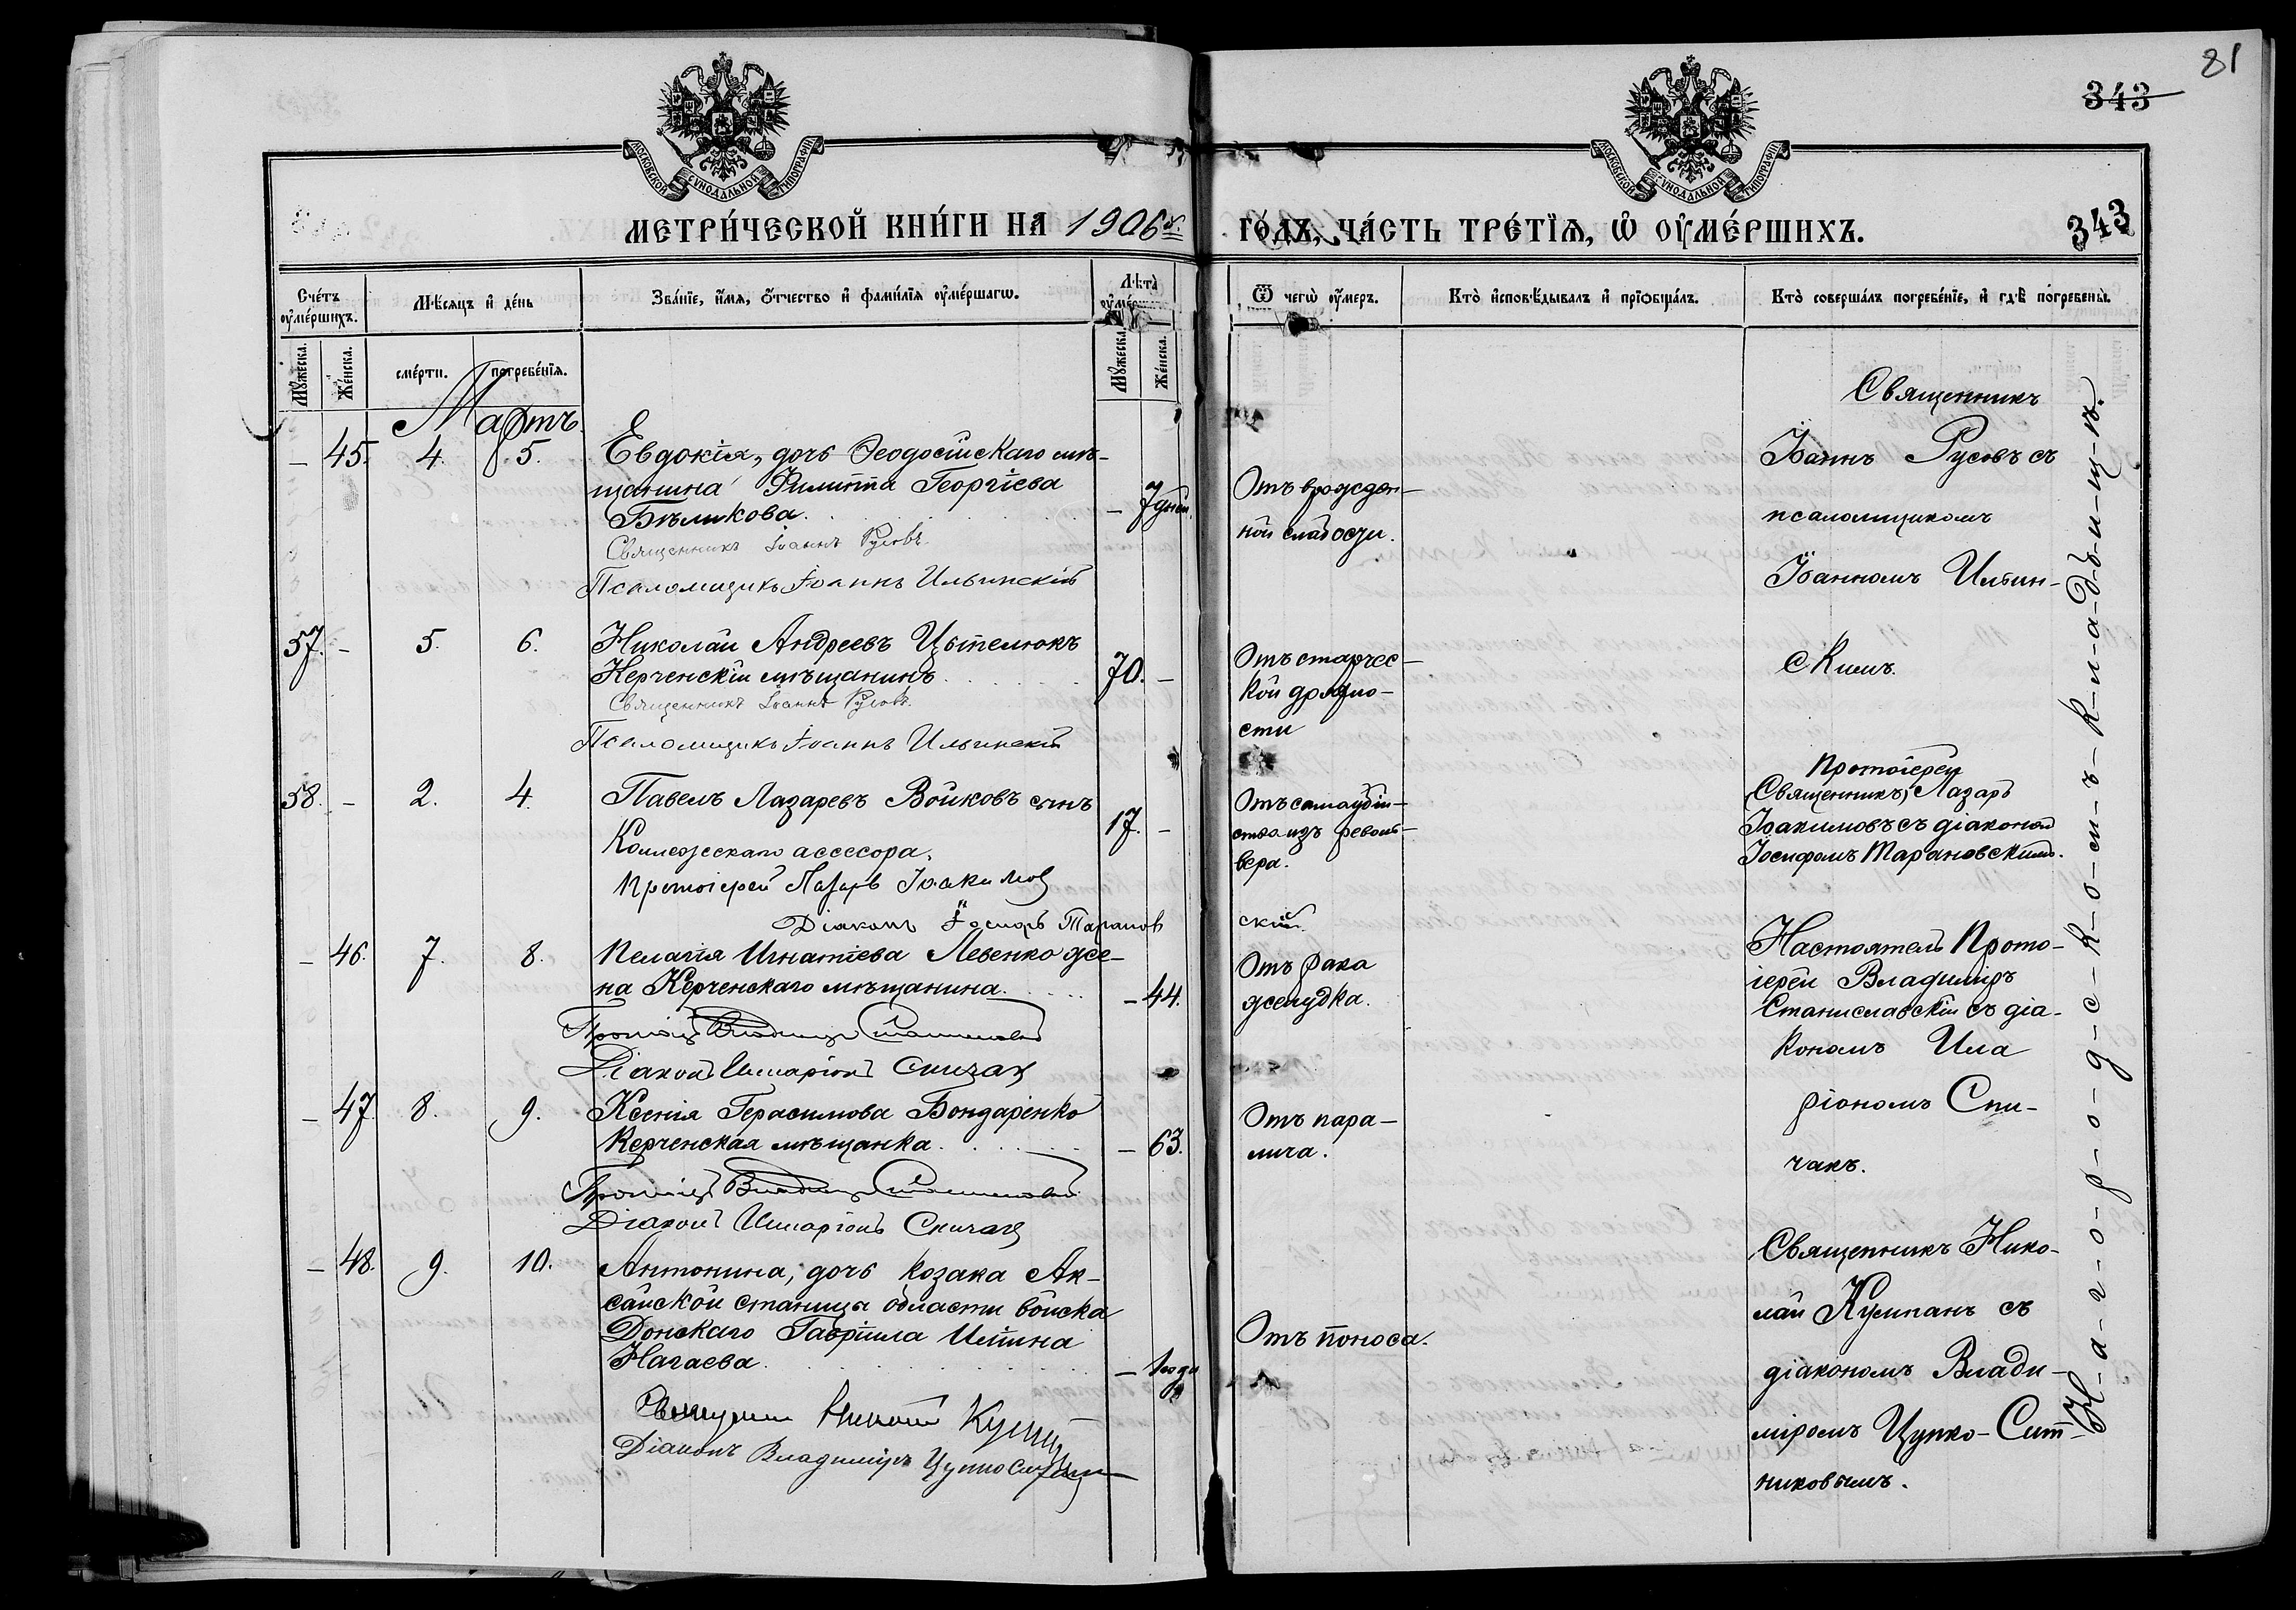 81
343
МОСКОВСКОЙ СѴНОДАЛЬНОЙ ТИПОГРАФІИ
МОСКОВСКОЙ СѴНОДАЛЬНОЙ ТИПОГРАФІИ
МЕТРИ́ЧЕСКОЙ КНИ́ГИ НА 1906 г.
ГО́ДЪ, ЧА́СТЬ ТРЕ́ТЇѦ, Ѡ҆ ОУ҆МЕ́РШИХЪ.
343
Сче́тъ оу҆ме́ршихъ.
Мѣ́сяцъ и҆ де́нь
Зва́нїе, и҆́мя, ѻ҆́тчество и҆ фами́лїя оу҆ме́ршагѡ.
Лѣ́та оу҆ме́ршагѡ
Ѿ чегѡ̀ оу҆́меръ.
Кто̀ и҆сповѣ́дывалъ и҆ прїѻбща́лъ.
Кто̀ соверша́лъ погребе́нїе, и҆ гдѣ̀ погребены̀.
Мꙋ́жеска.
Же́нска.
сме́рти.
погребе́нїя.
Мꙋ́жеска.
Же́нска.
Мартъ.
– 45. 4. 5. Евдокія, дочь Ѳеодосійскаго мѣ-
щанина Филиппа Георгіева
Бѣликова. – 7 дней.
Священникъ Іоаннъ Русовъ.
Псаломщикъ Іоаннъ Ильинскій
Отъ врожден-
ной слабости.
Священникъ
Іоаннъ Русовъ съ
псаломщикомъ
Іоанномъ Ильин-
скимъ.
57. – 5. 6. Николай Андреевъ Цытелюкъ
Керченскій мѣщанинъ 70. –
Священникъ Іоаннъ Русовъ.
Псаломщикъ Іоаннъ Ильинскій
Отъ старчес-
кой дряхло-
сти
58. – 2. 4. Павелъ Лазаревъ Войковъ сынъ
Коллежскаго ассесора. 17. –
Протоіерей Лазарь Іоакимов
Діаконъ Іосифъ Таранов
скій.
Отъ самоубій-
ства изъ револь-
вера.
Протоіерей
(Священникъ) Лазарь
Іоакимовъ съ діакономъ
Іосифомъ Тарановскимъ.
– 46. 7. 8. Пелагія Игнатіева Левенко же-
на Керченскаго мѣщанина. – 44.
Діаконъ Иларіонъ Спичак
Отъ рака
желудка.
Настоятель Прото-
іерей Владиміръ
Станиславскій съ діа-
кономъ Ила
ріономъ Спи-
чакъ.
– 47 8. 9. Ксенія Герасимова Бондаренко
Керченская мѣщанка. – 63.
Діаконъ Иларіонъ Спичак
Отъ пара-
лича.
– 48. 9. 10. Антонина, дочь козака Ак-
сайской станицы области войска
Донскаго Гавріила Ильина
Нагаева. – 1 года
Священник Николай
Діаконъ Владиміръ Цупко
Отъ поноса.
Священникъ Нико-
лай Кумпанъ съ
діакономъ Влади-
міромъ Цупко-Сит-
никовымъ.
На-г-о-р-о-д-с-к-о-м-ъ- к-л-а-д-б-и-щ-ѣ.